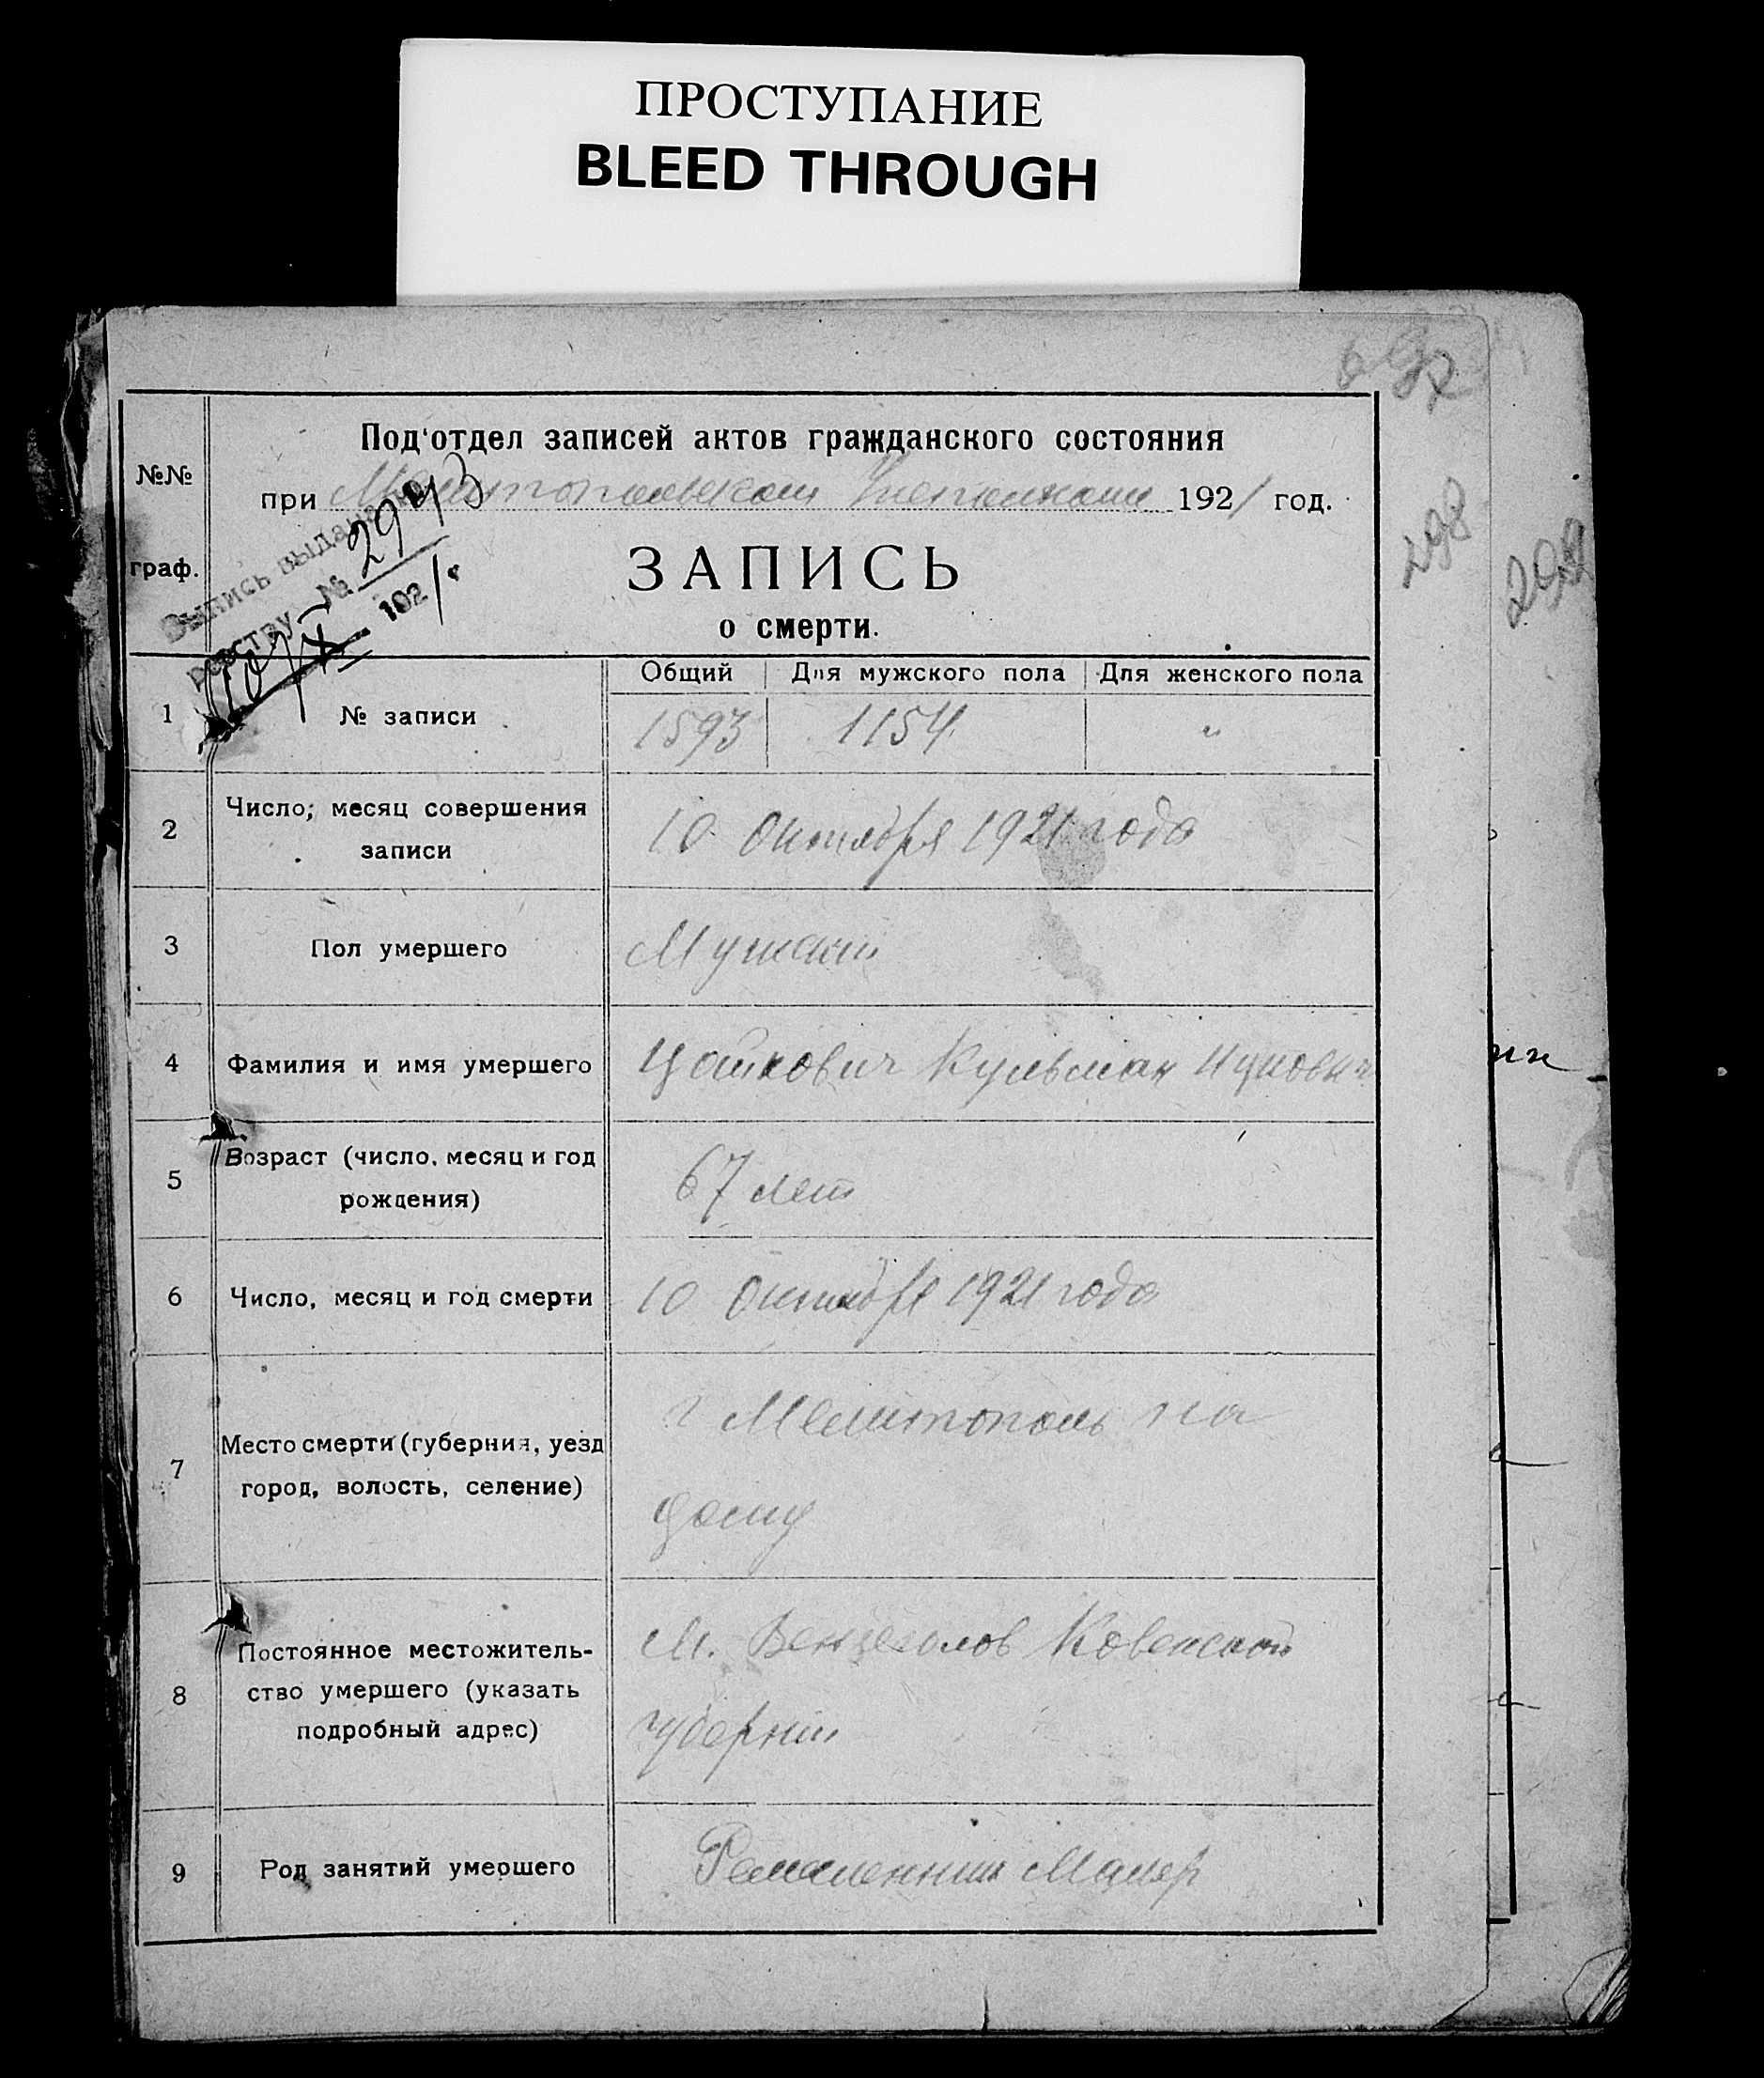 ПРОСТУПАНИЕ
BLEED THROUGH
692
Под'отдел записей актов гражданского состояния
№№
при Мелитопольском 1921 год.
298
299
граф.
Выпись выдана по
реестру № 2943
10/X 1921 г.
ЗАПИСЬ
о смерти.
Общий Для мужского пола Для женского пола
1 № записи 1593 1154 "
2 Число, месяц совершения
записи
10 Октября 1921 года
3 Пол умершего Мужской
4 Фамилия и имя умершего Цаикович Кульман Ицкович
5 Возраст (число, месяц и год
рождения)
67 лет
6 Число, месяц и год смерти 10 Октября 1921 года
7 Место смерти (губерния, уезд
город, волость, селение)
г Мелитополь на
дому
8 Постоянное местожитель-
ство умершего (указать
подробный адрес)
м. Ковенской
губернии
9 Род занятий умершего Ремесленник Маляр